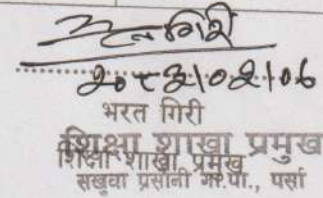 २०८३१०२१०६
भरत गिरी
शिक्षा शाखा प्रमुख
शिक्षा शाखा प्रमुख
सखुवा प्रसौनी गा.पा., पर्सा